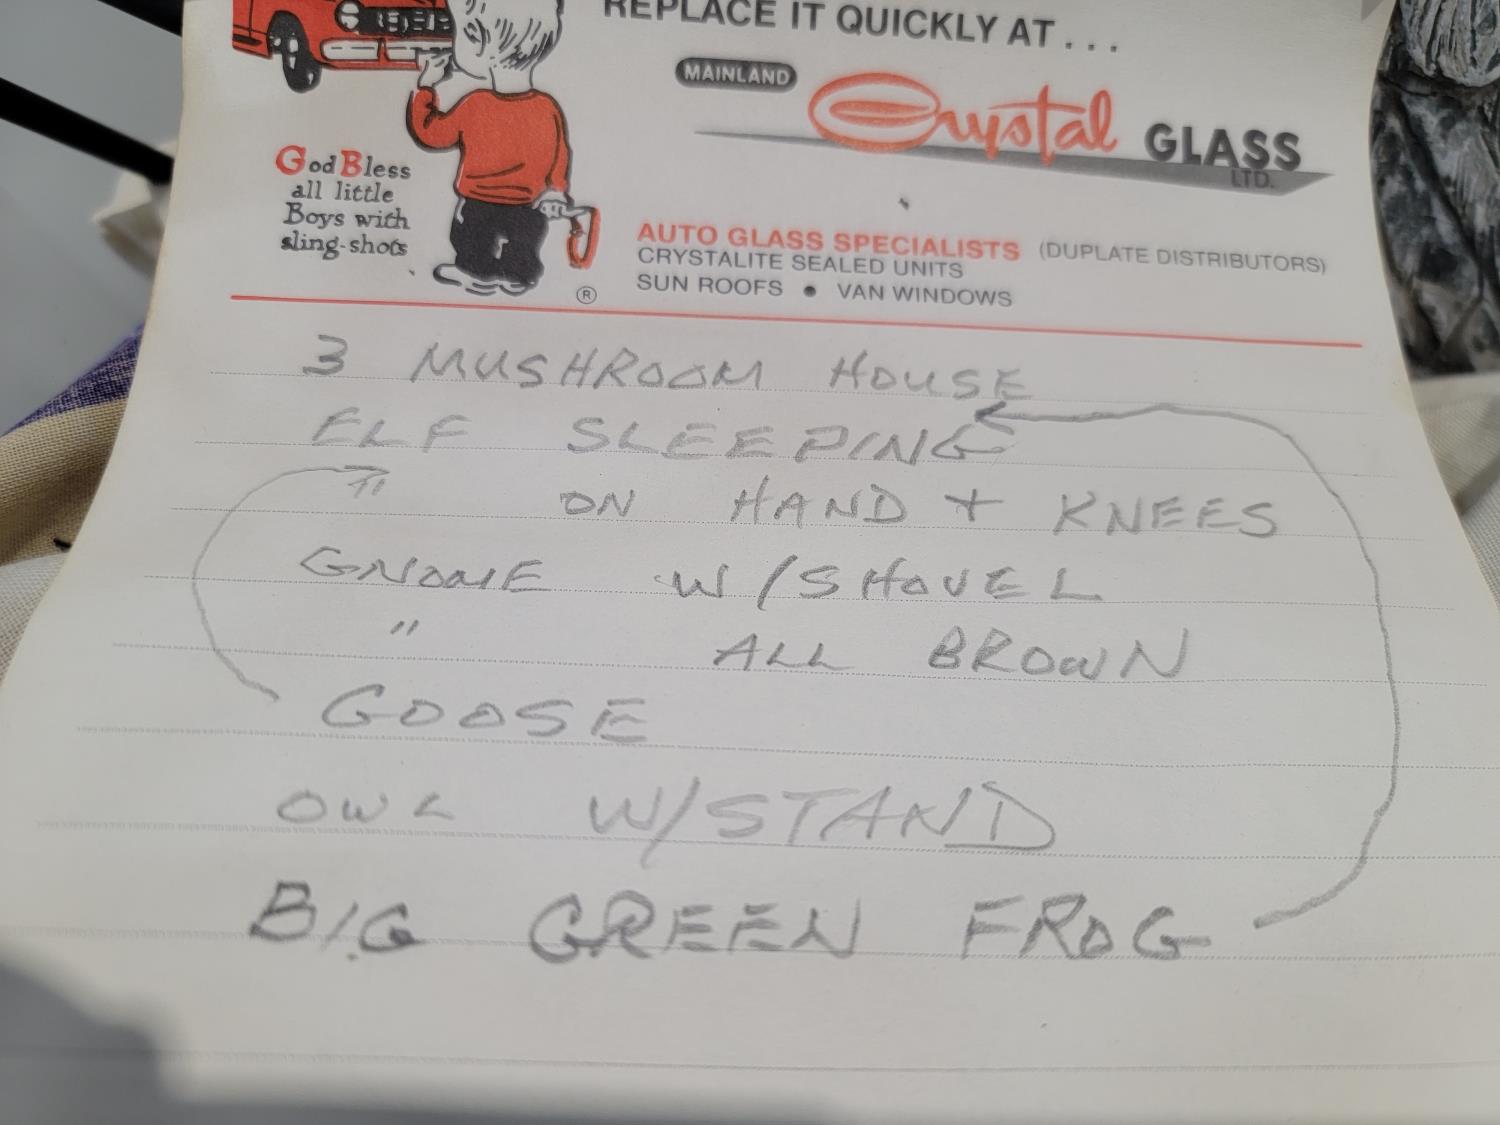 REPLACE IT QUICKLY AT . . .
MAINLAND
Crystal GLASS
LTD.
God Bless
all little
Boys with
sling-shots
®
AUTO GLASS SPECIALISTS (DUPLATE DISTRIBUTORS)
CRYSTALITE SEALED UNITS
SUN ROOFS ● VAN WINDOWS
3 MUSHROOM HOUSE
ELF SLEEPING
ON HAND + KNEES
GNOME W/SHOVEL
" ALL BROWN
GOOSE
OWL W/STAND
BIG GREEN FROG